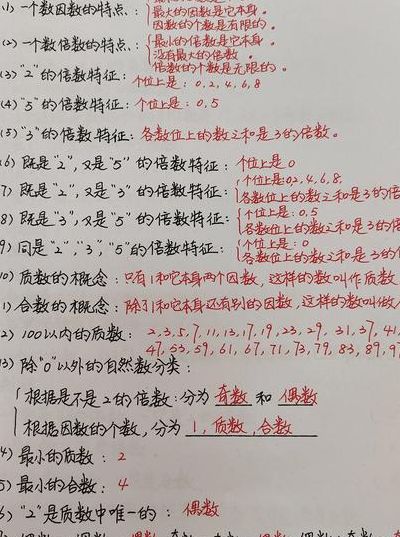 最大的因数是它本身。
(1) 一个数因数的特点：
因数的个数是有限的。
最小的倍数是它本身。
(2) 一个数倍数的特点：
没有最大的倍数。
倍数的个数是无限的。
(3) "2"的倍数特征：个位上是：0,2,4,6,8
(4) "5"的倍数特征：个位上是：0,5
(5) "3"的倍数特征：各数位上的数之和是3的倍数。
(6) 既是"2"，又是"5"的倍数特征：个位上是0
7) 既是"2"，又是"3"的倍数特征：个位上是：0,2,4,6,8.
各数位上的数之和是3的倍
8) 既是"3"，又是"5"的倍数特征：个位上是：0,5
各数位上的数之和是3的倍
9) 同是"2"，"3"，"5"的倍数特征：个位上是：0
各数位上的数之和是3的
10) 质数的概念：只有1和它本身两个因数，这样的数叫作质数
1) 合数的概念：除了1和它本身还有别的因数，这样的数叫做
2) 100以内的质数：2,3,5,7,11,13,17,19,23,29,31,37,41
47,53,59,61,67,71,73,79,83,89,97
3) 除"0"以外的自然数分类：
根据是不是2的倍数：分为 奇数 和 偶数
根据因数的个数，分为 1，质数，合数
4) 最小的质数：2
5) 最小的合数：4
6) "2"是质数中唯一的：偶数